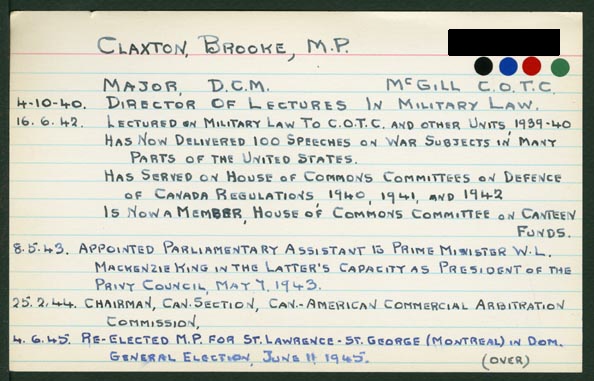 CLAXTON, BROOKE, M.P.
MAJOR, D.C.M. McGILL C.O.T.C.
4-10-40. DIRECTOR OF LECTURES IN MILITARY LAW.
16.6.42. LECTURED ON MILITARY LAW TO C.O.T.C. AND OTHER UNITS, 1939-40
HAS NOW DELIVERED 100 SPEECHES ON WAR SUBJECTS IN MANY
PARTS OF THE UNITED STATES.
HAS SERVED ON HOUSE OF COMMONS COMMITTEES ON DEFENCE
OF CANADA REGULATIONS, 1940, 1941, AND 1942
IS NOW A MEMBER, HOUSE OF COMMONS COMMITTEE ON CANTEEN
FUNDS.
8.5.43. APPOINTED PARLIAMENTARY ASSISTANT TO PRIME MINISTER W.L.
MACKENZIE KING IN THE LATTER'S CAPACITY AS PRESIDENT OF THE
PRIVY COUNCIL, MAY 7, 1943.
25.2.44. CHAIRMAN, CAN. SECTION, CAN.-AMERICAN COMMERCIAL ARBITRATION
COMMISSION,
4.6.45. RE-ELECTED M.P. FOR ST. LAWRENCE-ST. GEORGE (MONTREAL) IN DOM.
GENERAL ELECTION, JUNE 11, 1945.
(OVER)